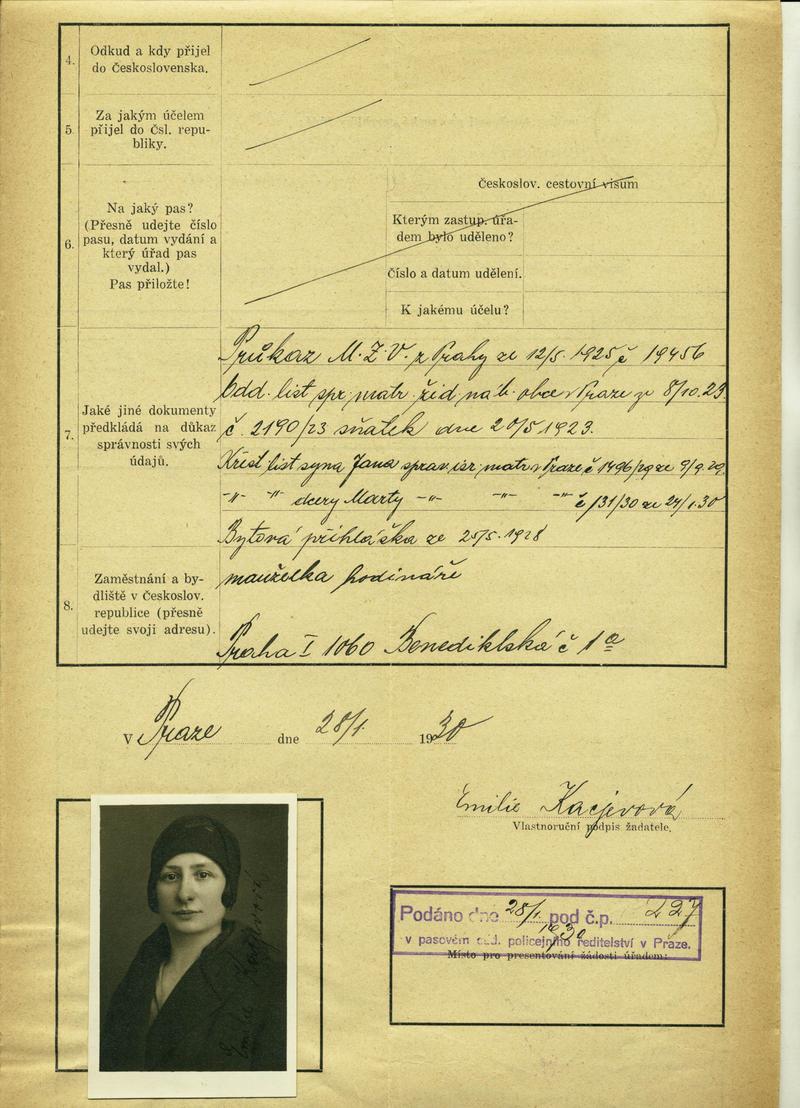 4.
Odkud a kdy přijel
do Československa.
5.
Za jakým účelem
přijel do čsl. repu-
bliky.
6.
Na jaký pas?
(Přesně udejte číslo
pasu, datum vydání a
který úřad pas
vydal.)
Pas přiložte!
Českoslov. cestovní visum
Kterým zastup. úřa-
dem bylo uděleno?
Číslo a datum udělení.
K jakému účelu?
7.
Jaké jiné dokumenty
předkládá na důkaz
správnosti svých
údajů.
Průkaz M.Z.V. z Prahy ze 12/5. 1925 č 19456
Odd. list spr. matr. žid. náb. obce v Praze ze 8/10.23
č. 2190/23 sňatek dne 20/5 1923.
Křest list syna Jana sprav. isr. matr v Praze č 1496/29 ze 9/9.29.
-"- -"- dcery Marty -"- -"- -"- č 131/30 ze 24/1.30
Bytová přihláška ze 25/5. 1928
8.
Zaměstnání a by-
dliště v Českoslov.
republice (přesně
udejte svoji adresu).
manželka hodináře
Praha I 1060 Benediktská č 1a
V Praze dne 28/1. 1930
Emilie Kacjevová
Vlastnoruční podpis žadatele.
Podáno dne 28/1. 1930 pod č.p. 227
v pasovém odd. policejního ředitelství v Praze.
Místo pro presentování žádosti úřadem:
Emilie Kacjevová